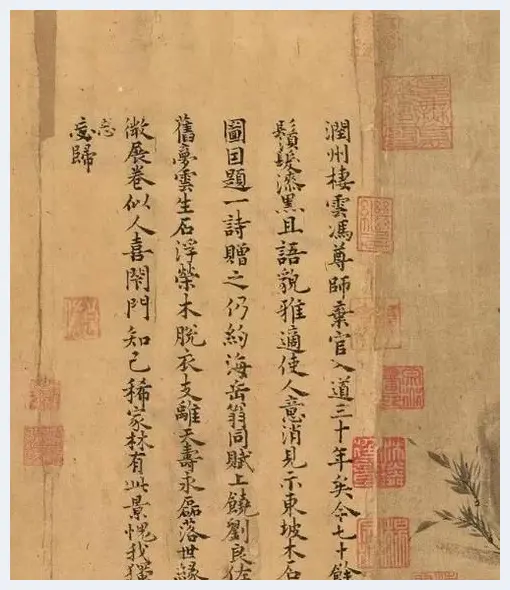 潤州棲雲馮尊師棄官入道三十年矣今七十餘
鬚髮漆黑且語貌雅適使人意消見示東坡木石
圖因題一詩贈之仍約海岳翁同賦上饒劉良佐
舊夢雲生石浮榮木脫衣支離天壽永磊落世緣
微展卷似人喜閑門知己稀家林有此景愧我獨
忘歸